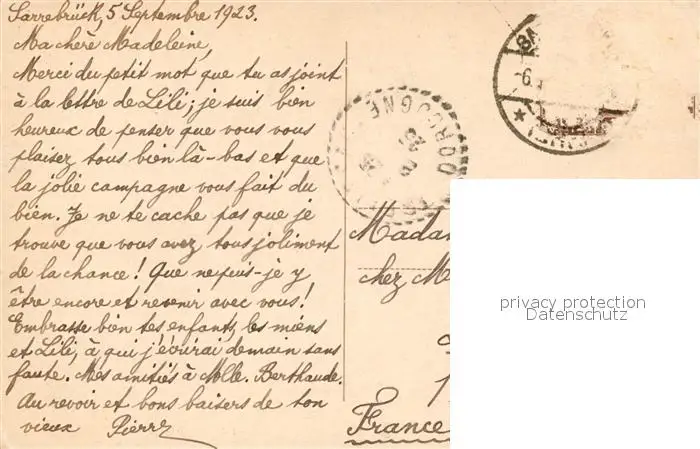 Sarrebrück, 5 Septembre 1923.
Ma chère Madeleine,
Merci du petit mot que tu as joint
à la lettre de Lili; je suis bien
heureux de penser que vous vous
plaisez tous bien là-bas et que
la jolie campagne vous fait du
bien. Je ne te cache pas que je
trouve que vous avez tous joliment
de la chance! Que ne puis-je y
être encore et revenir avec vous!
Embrasse bien tes enfants, les miens
et Lili, à qui j'écrirai demain sans
faute. Mes amitiés à Melle. Berthaude.
Au revoir et bons baisers de ton
vieux Pierre
DORDOGNE
Madam
chez M
France
privacy protection
Datenschutz